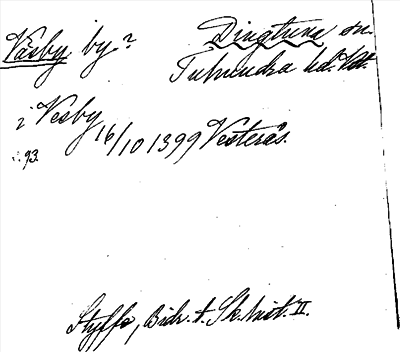 Väsby by?
Dingtuna sn.
Tuhundra hd. Vstm.
i Vesby 16/10 1399 Vesterås.
s. 93.
Styffe, Bidr. t. Sk. hist. II.